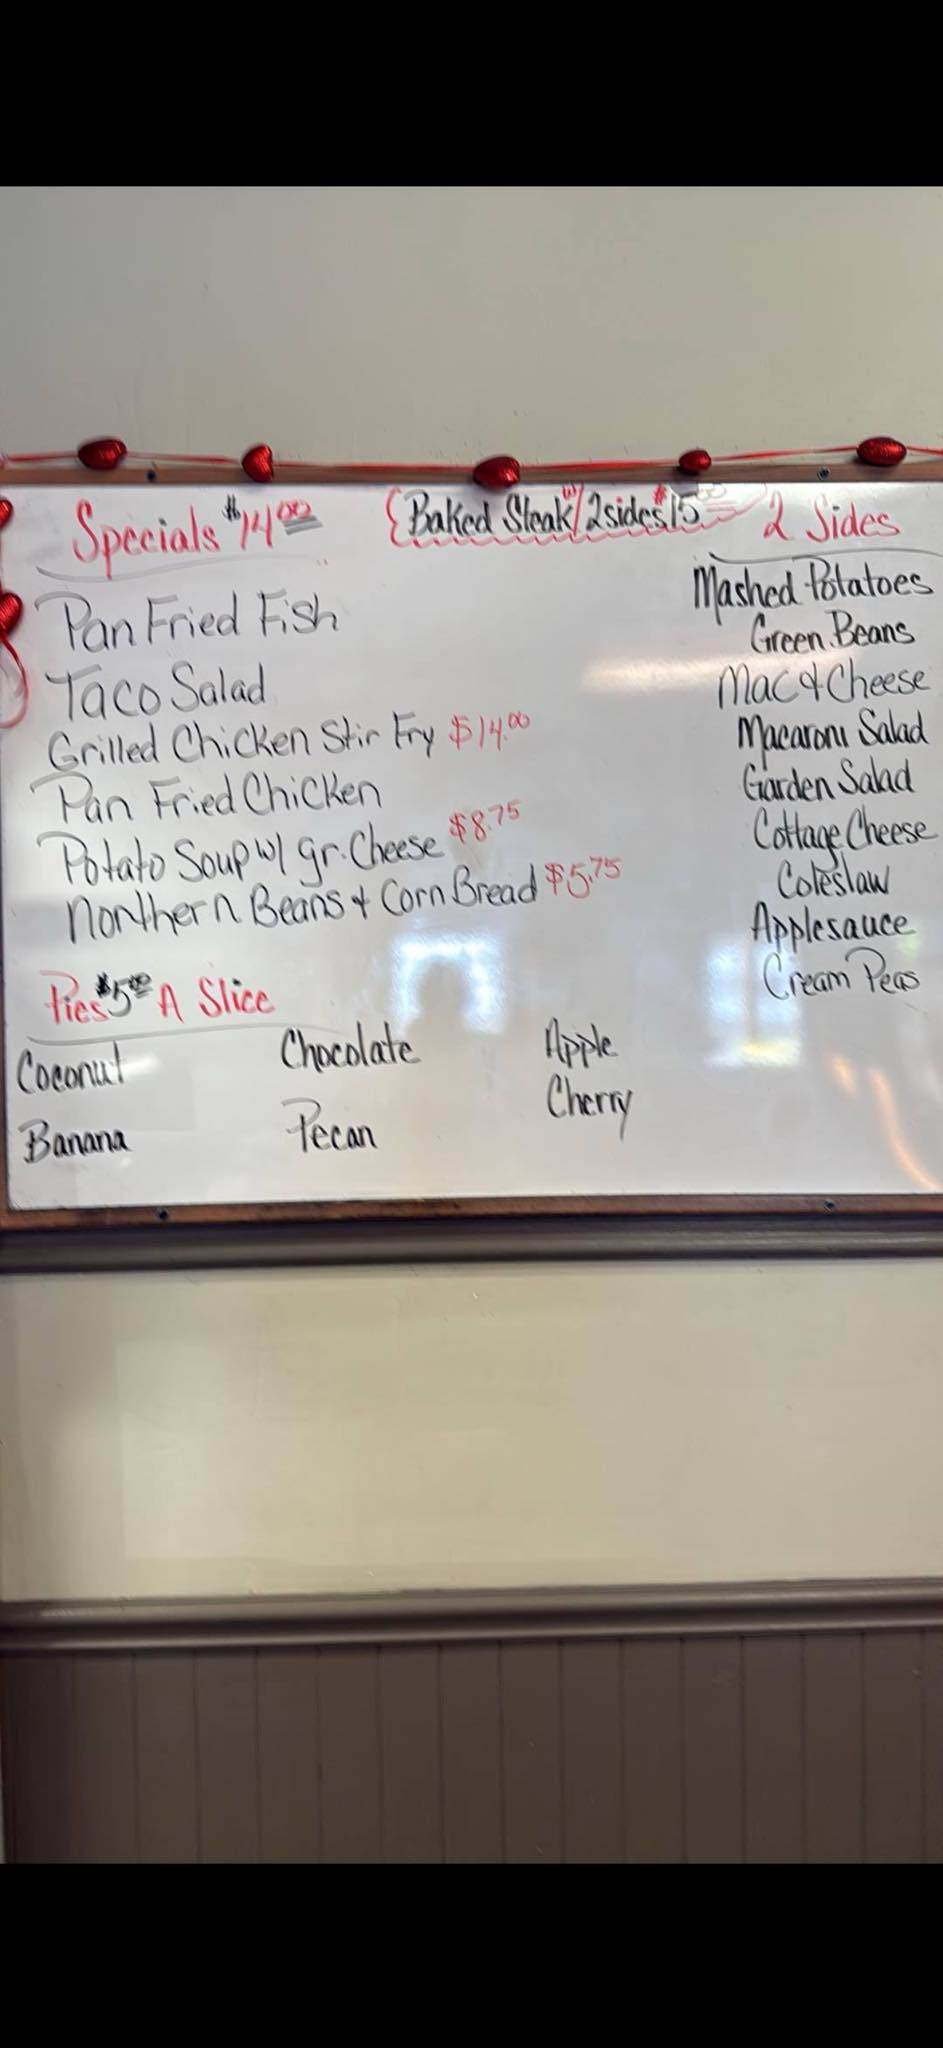 Specials $14.00
{Baked Steak w/ 2 sides $15.00
Pan Fried Fish
Taco Salad
Grilled Chicken Stir Fry $14.00
Pan Fried Chicken
Potato Soup w/ gr. Cheese $8.75
Northern Beans & Corn Bread $5.75
2 Sides
Mashed Potatoes
Green Beans
Mac & Cheese
Macaroni Salad
Garden Salad
Cottage Cheese
Coleslaw
Applesauce
Cream Peas
Pies $5.00 A Slice
Coconut
Chocolate
Apple
Cherry
Banana
Pecan